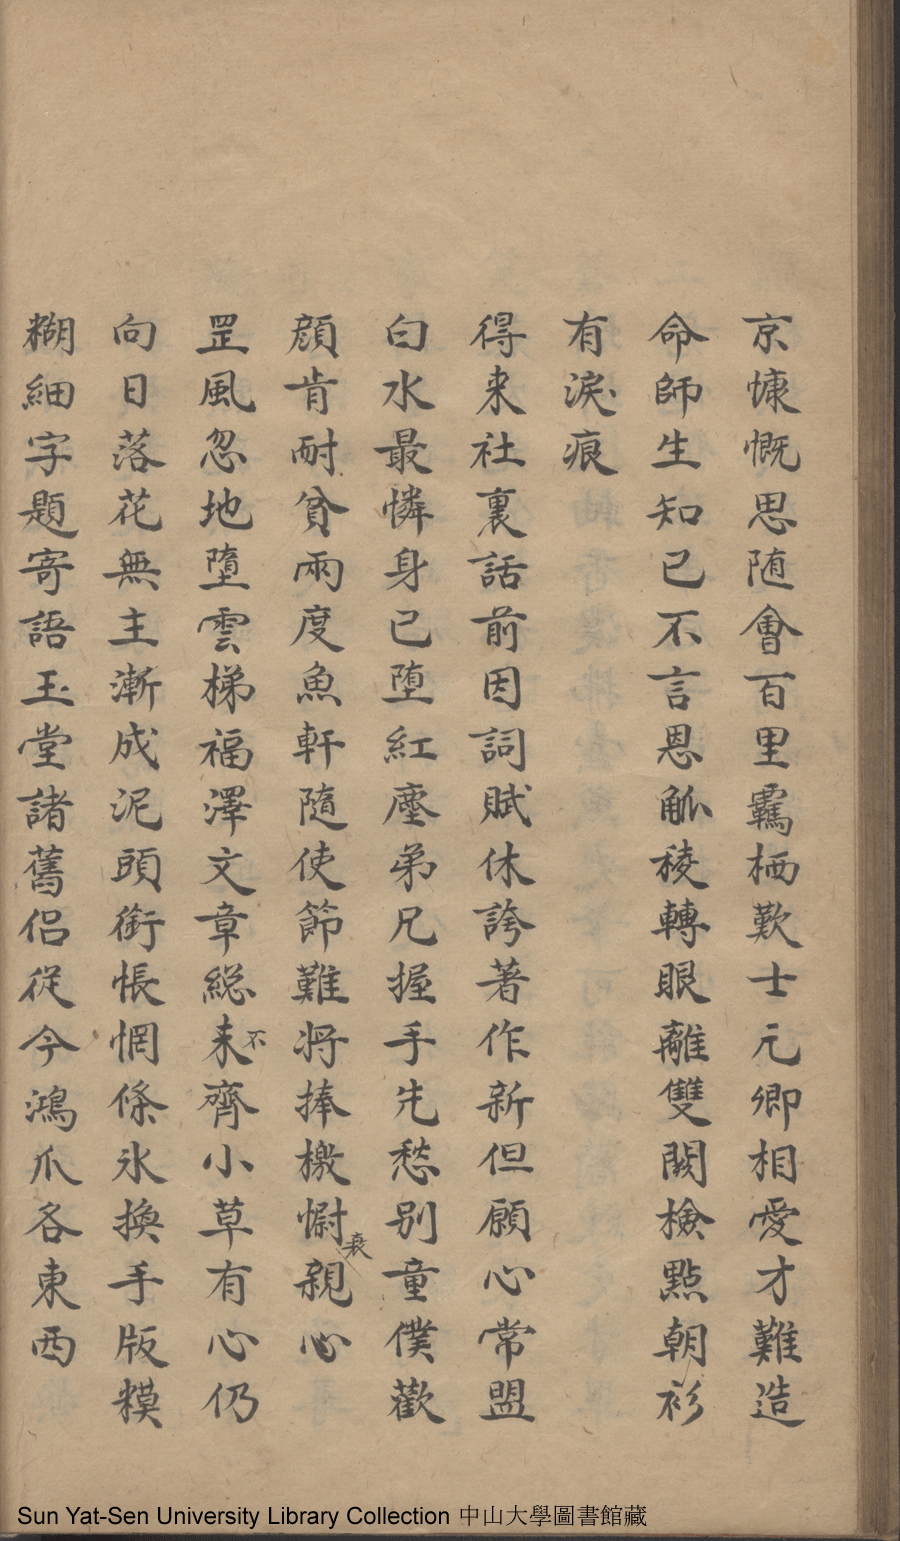 京慷慨思随會百里羈栖歎士元卿相愛才難造
命師生知已不言恩觚稜轉眼離雙闕檢點朝衫
有淚痕
得来社裏話前因詞賦休誇著作新但願心常盟
白水最憐身已墮紅塵弟兄握手先愁别童僕歡
顔肯耐貧兩度魚軒隨使節難将捧檄慰親心
衰
罡風忽地墮雲梯福澤文章総来齊小草有心仍
不
向日落花無主漸成泥頭銜悵惘條氷換手版糢
糊細字題寄語玉堂諸舊侣従今鴻爪各東西
Sun Yat-Sen University Library Collection 中山大學圖書館藏